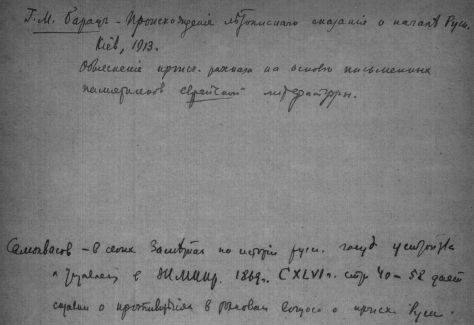 Г. М. Барацъ – Происхожденiе лѣтописнаго сказанiя о началѣ Руси.
Кiев, 1913.
Объясненiе происх. разказа на основѣ письменных
памятников еврейской литературы.
Самоквасов – в своих Замѣтках по исторiи русск. госуд. устройства
и управленiя в Ж.М.Н.Пр. 1869 г. CXLVI т. стр 40–58 дает
о противорѣчiях в вопроса о происх. Руси.